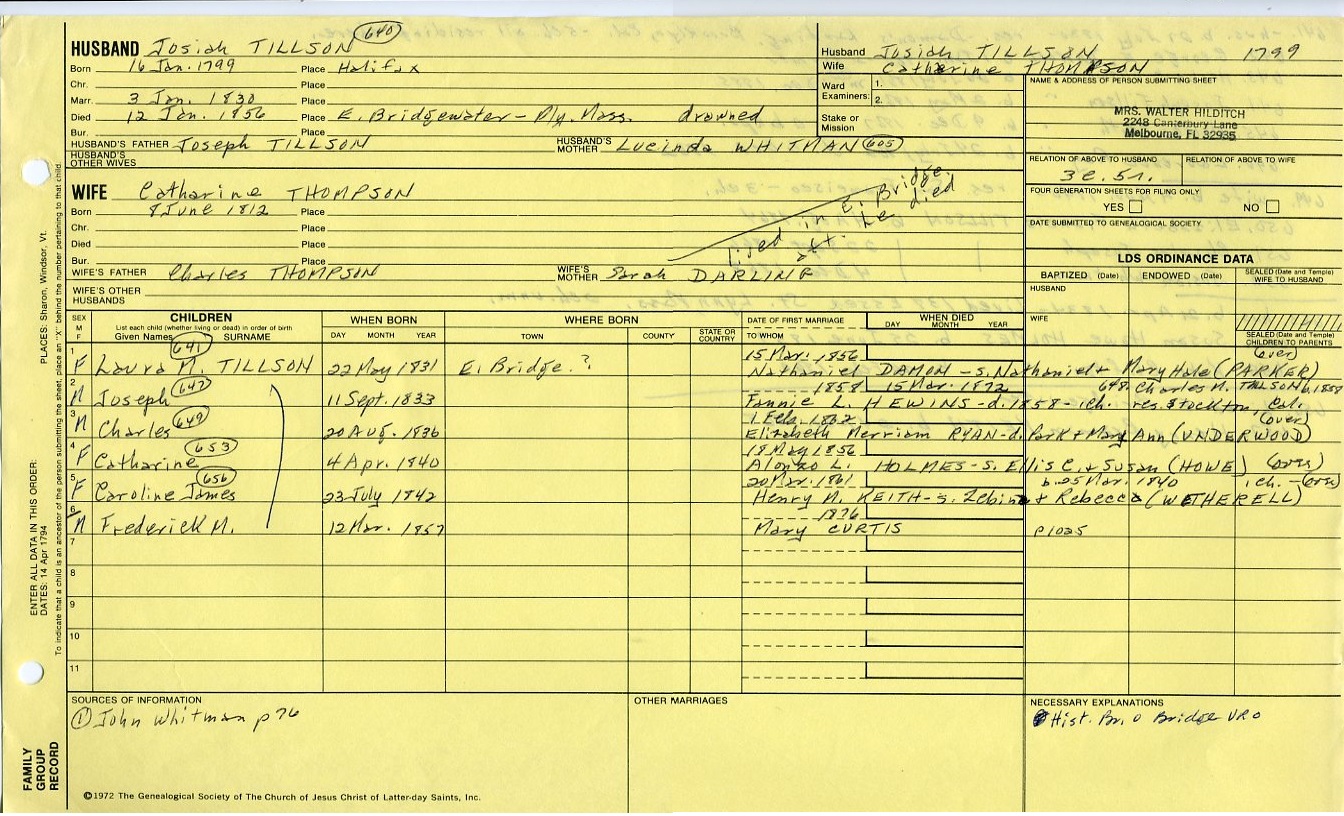 HUSBAND Josiah TILLSON 640
Born 16 Jan. 1799 Place Halifax
Chr. Place
Marr. 3 Jan. 1830 Place
Died 12 Jan. 1856 Place E. Bridgewater - Ply. Mass. drowned
Bur. Place
HUSBAND'S FATHER Joseph TILLSON HUSBAND'S MOTHER Lucinda WHITMAN 605
HUSBAND'S OTHER WIVES
Husband Josiah TILLSON 1799
Wife Catharine THOMPSON
Ward Examiners: 1.
2.
Stake or Mission
NAME & ADDRESS OF PERSON SUBMITTING SHEET
MRS. WALTER HILDITCH
2248 Canterbury Lane
Melbourne, FL 32935
RELATION OF ABOVE TO HUSBAND RELATION OF ABOVE TO WIFE
3c. 5r.
FOUR GENERATION SHEETS FOR FILING ONLY
YES NO
DATE SUBMITTED TO GENEALOGICAL SOCIETY
WIFE Catharine THOMPSON
Born 8 June 1812 Place
Chr. Place
Died Place
Bur. Place
lived in E. Bridge.
aft. he died
WIFE'S FATHER Charles THOMPSON WIFE'S MOTHER Sarah DARLING
WIFE'S OTHER HUSBANDS
LDS ORDINANCE DATA
BAPTIZED (Date) ENDOWED (Date) SEALED (Date and Temple) WIFE TO HUSBAND
HUSBAND
WIFE
SEALED (Date and Temple) CHILDREN TO PARENTS
SEX M F CHILDREN List each child (whether living or dead) in order of birth Given Names SURNAME
WHEN BORN DAY MONTH YEAR
WHERE BORN TOWN COUNTY STATE OR COUNTRY
DATE OF FIRST MARRIAGE TO WHOM
WHEN DIED DAY MONTH YEAR
641 15 Mar. 1856 (over)
1 F Laura M. TILLSON 22 May 1831 E. Bridge.? Nathaniel DAMON - s. Nathaniel + Mary Hale (PARKER)
642 1858 15 Mar. 1872 648. Charles M. TILLSON b. 1859
2 M Joseph 11 Sept. 1833 Fannie L. HEWINS - d. 1858 - 1 ch. res. Stockton, Cal.
649 1 Feb. 1862 (over)
3 M Charles 20 Aug. 1836 Elizabeth Merriam RYAN - d. Park + Mary Ann (UNDERWOOD)
653 18 May 1856
4 F Catharine 4 Apr. 1840 Alonzo L. HOLMES - s. Ellis C. + Susan (HOWE) (over)
656 20 Mar. 1861 b. 25 Mar. 1840 1 ch. - (over)
5 F Caroline James 23 July 1842 Henry M. KEITH - s. Zebina + Rebecca (WETHERELL)
1876
6 M Frederick M. 12 Mar. 1857 Mary CURTIS p1025
7
8
9
10
11
SOURCES OF INFORMATION
① John Whitman p 76
OTHER MARRIAGES
NECESSARY EXPLANATIONS
Hist. Br. O Bridge VRO
©1972 The Genealogical Society of The Church of Jesus Christ of Latter-day Saints, Inc.
FAMILY GROUP RECORD
ENTER ALL DATA IN THIS ORDER:
DATES: 14 Apr 1794
PLACES: Sharon, Windsor, Vt.
To indicate that a child is an ancestor of the person submitting the sheet, place an "X" behind the number pertaining to that child.